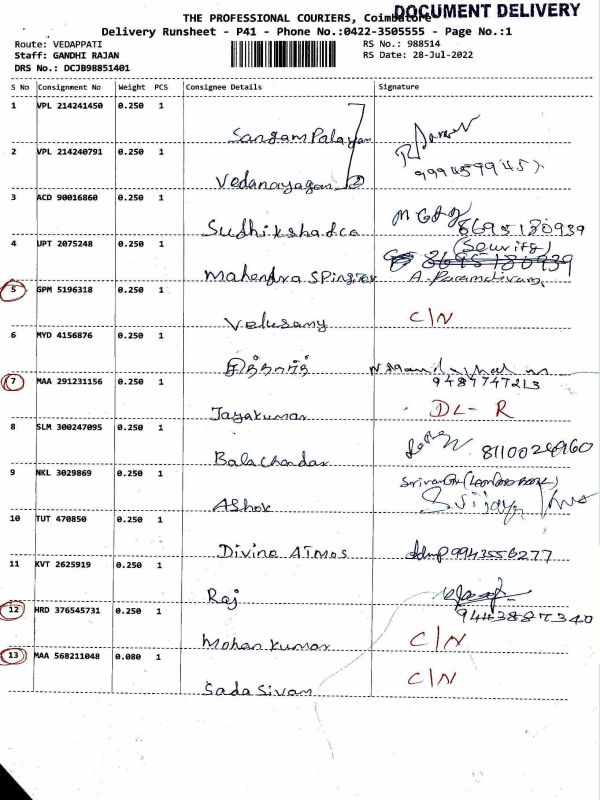 THE PROFESSIONAL COURIERS, Coimbatore
DOCUMENT DELIVERY
Delivery Runsheet - P41 - Phone No.:0422-3505555 - Page No.:1
Route: VEDAPPATI
RS No.: 988514
Staff: GANDHI RAJAN
RS Date: 28-Jul-2022
DRS No.: DCJB98851401
S No Consignment No Weight PCS Consignee Details Signature
1 VPL 214241450 0.250 1
Sangam Palayam
2 VPL 214240791 0.250 1
Vedanayagan
3 ACD 90016860 0.250 1
Sudhikshadca 8695180939
4 UPT 2075248 0.250 1
(Security)
8695180939
Mahendra SPingTex A. Paramasivam
5 GPM 5196318 0.250 1
Velusamy C/N
6 MYD 4156876 0.250 1
7 MAA 291231156 0.250 1 9487747213
Jayakumar DL- R
8 SLM 300247095 0.250 1
Balachandar
9 NKL 3029869 0.250 1
Ashok Svijay
10 TUT 470850 0.250 1
Divine ATMOS 9943556277
11 KVT 2625919 0.250 1
Raj
12 HRD 376545731 0.250 1 9443887340
Mohan Kumar C/N
13 MAA 568211048 0.080 1
Sada Sivam C/N